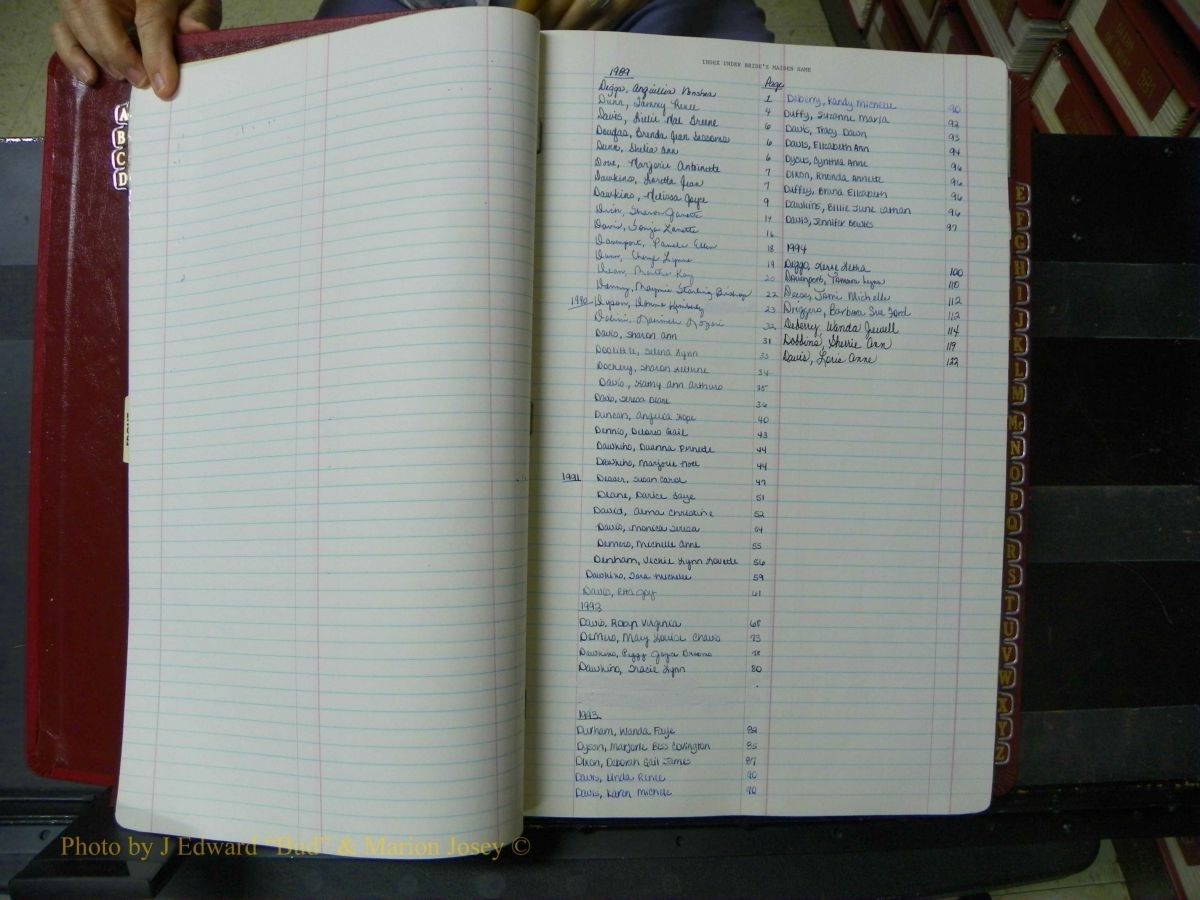 INDEX UNDER BRIDE'S MAIDEN NAME
1989
Page
Diggs, Anguillia Vonshea 1
Dunn, Tammy Renee 4
Davis, Lucille Mae Greene 6
Douglas, Brenda Jean Sessoms 6
Dunn, Shelia Ann 6
Dove, Marjorie Antoinette 7
Dawkins, Loretta Jean 7
Dawkins, Melissa Joyce 9
Sharon Janette 14
Davis, Tonja Lanette 16
Davenport, Pamela Ellen 18
Dunn, Cheryl Lynne 19
Dean, Martha Kay 20
Denny, Maymie Sterling Bishop 22
1990 Dyson, Donna Kimberly 23
32
Davis, Sharon Ann 31
Doolittle, Selena Lynn 33
Dockery, Sharon 34
Davis, Kathy Ann Arthurs 35
Davis, Teresa Diane 36
Duncan, Angelia Hope 40
Dennis, Deloris Gail 43
Dawkins, Duanna 44
Dawkins, Marjorie Noel 44
1991 Susan Carol 47
Deane, Darice Faye 51
David, Alma Christine 52
Davis, Monica Teresa 54
Demers, Michelle Anne 55
Denham, Vickie Lynn Lovette 56
Dawkins, Tara Michelle 59
Davis, Etta Joy 61
1992
Davis, Robyn Virginia 68
DeMers, Mary Louise Chavis 73
Dawkins, Peggy Joyce 78
Dawkins, Tracie Lynn 80
1993
Durham, Wanda Faye 82
Dyson, Marjorie Bess Covington 85
Dixon, Deborah Gail James 87
Davis, Linda Renee 90
Davis, Karen Michele 90
DeBerry, Kandy Michelle 90
Duffy, Suzanne Maria 92
Davis, Tracy Dawn 93
Davis, Elizabeth Ann 94
Dycus, Cynthia Anne 96
Dixon, Rhonda Annette 96
Duffey, Bruna Elizabeth 96
Dawkins, Billie June 96
Davis, Jennifer Bowles 97
1994
Diggs, Letha 100
Davenport, Tamara Lynn 110
Deese, Tami Michelle 112
Driggers, Barbara Sue Ford 112
Deberry, Wanda Jewell 114
Dobbins, Sherrie Ann 119
Davis, Lorie Anne 122
A
B
C
D
E
F
G
H
I
J
K
L
M
Mc
N
O
P
Q
R
S
T
U
V
W
X
Y
Z
Photo by J Edward "Bud" & Marion Josey ©